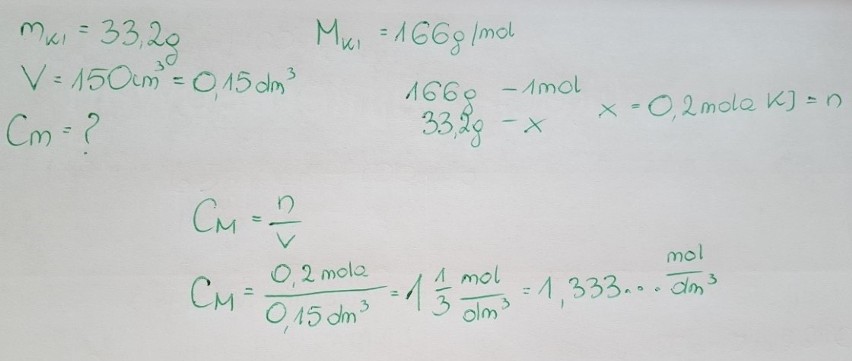 mKI = 33,2g
MKI = 166g/mol
V = 150cm³ = 0,15dm³
166g - 1mol
33,2g - x
x = 0,2mola KJ = n
Cm = ?
CM = n/V
CM = 0,2mola/0,15dm³ = 1 1/3 mol/dm³ = 1,333... mol/dm³